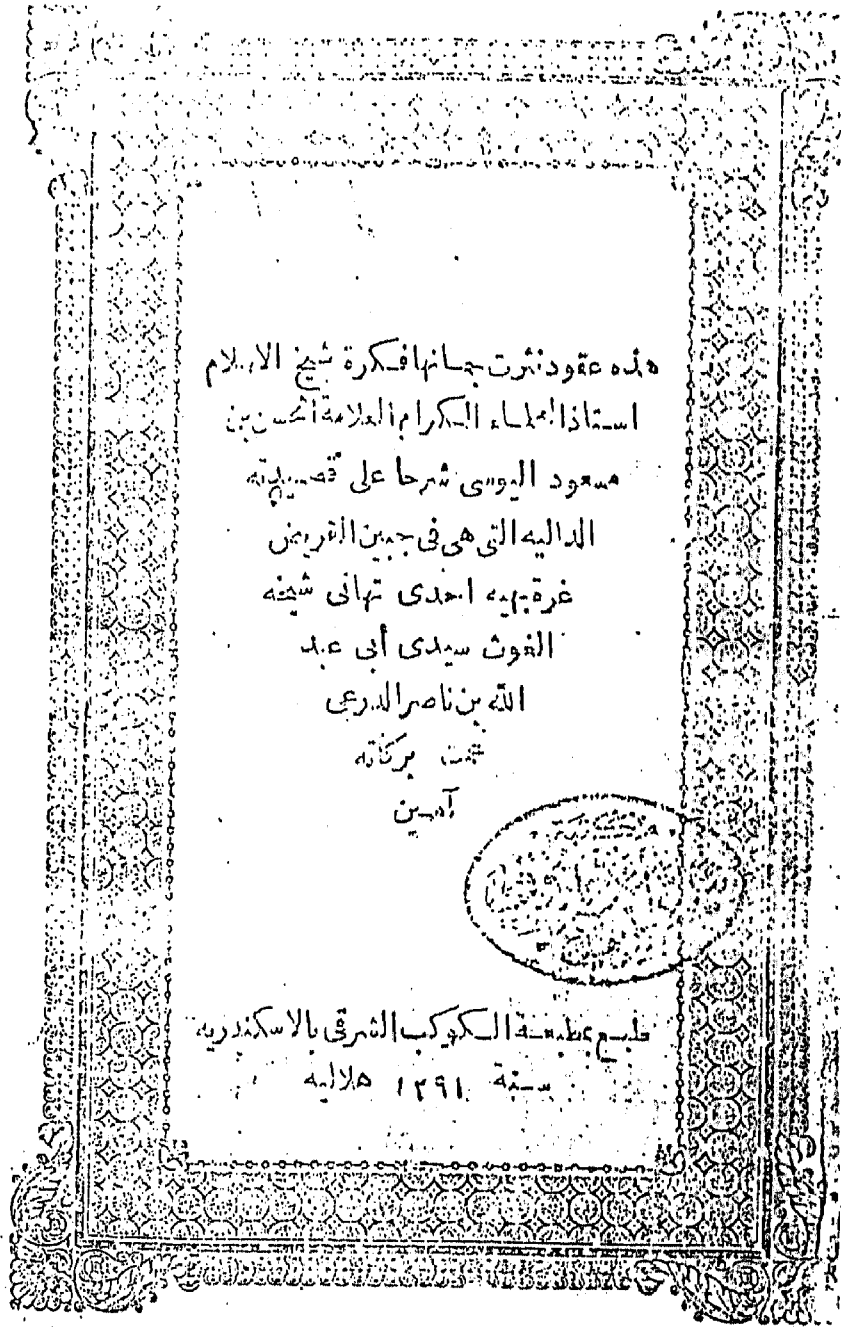 هذه عقود نثرت جمانها فكرة شيخ الاسلام
استاذ العلماء الكرام العلامة الحسن بن
مسعود اليوسى شرحا على قصيدته
الداليه التى هى فى جبين القريض
غرة بهيه احدى تهانى شيخه
الغوث سيدى أبى عبد
الله بن ناصر الدرعى
بركاته
آمـين
طبع بمطبعة الكوكب الشرقى بالاسكندريه
سنة ١٢٩١ هلاليه